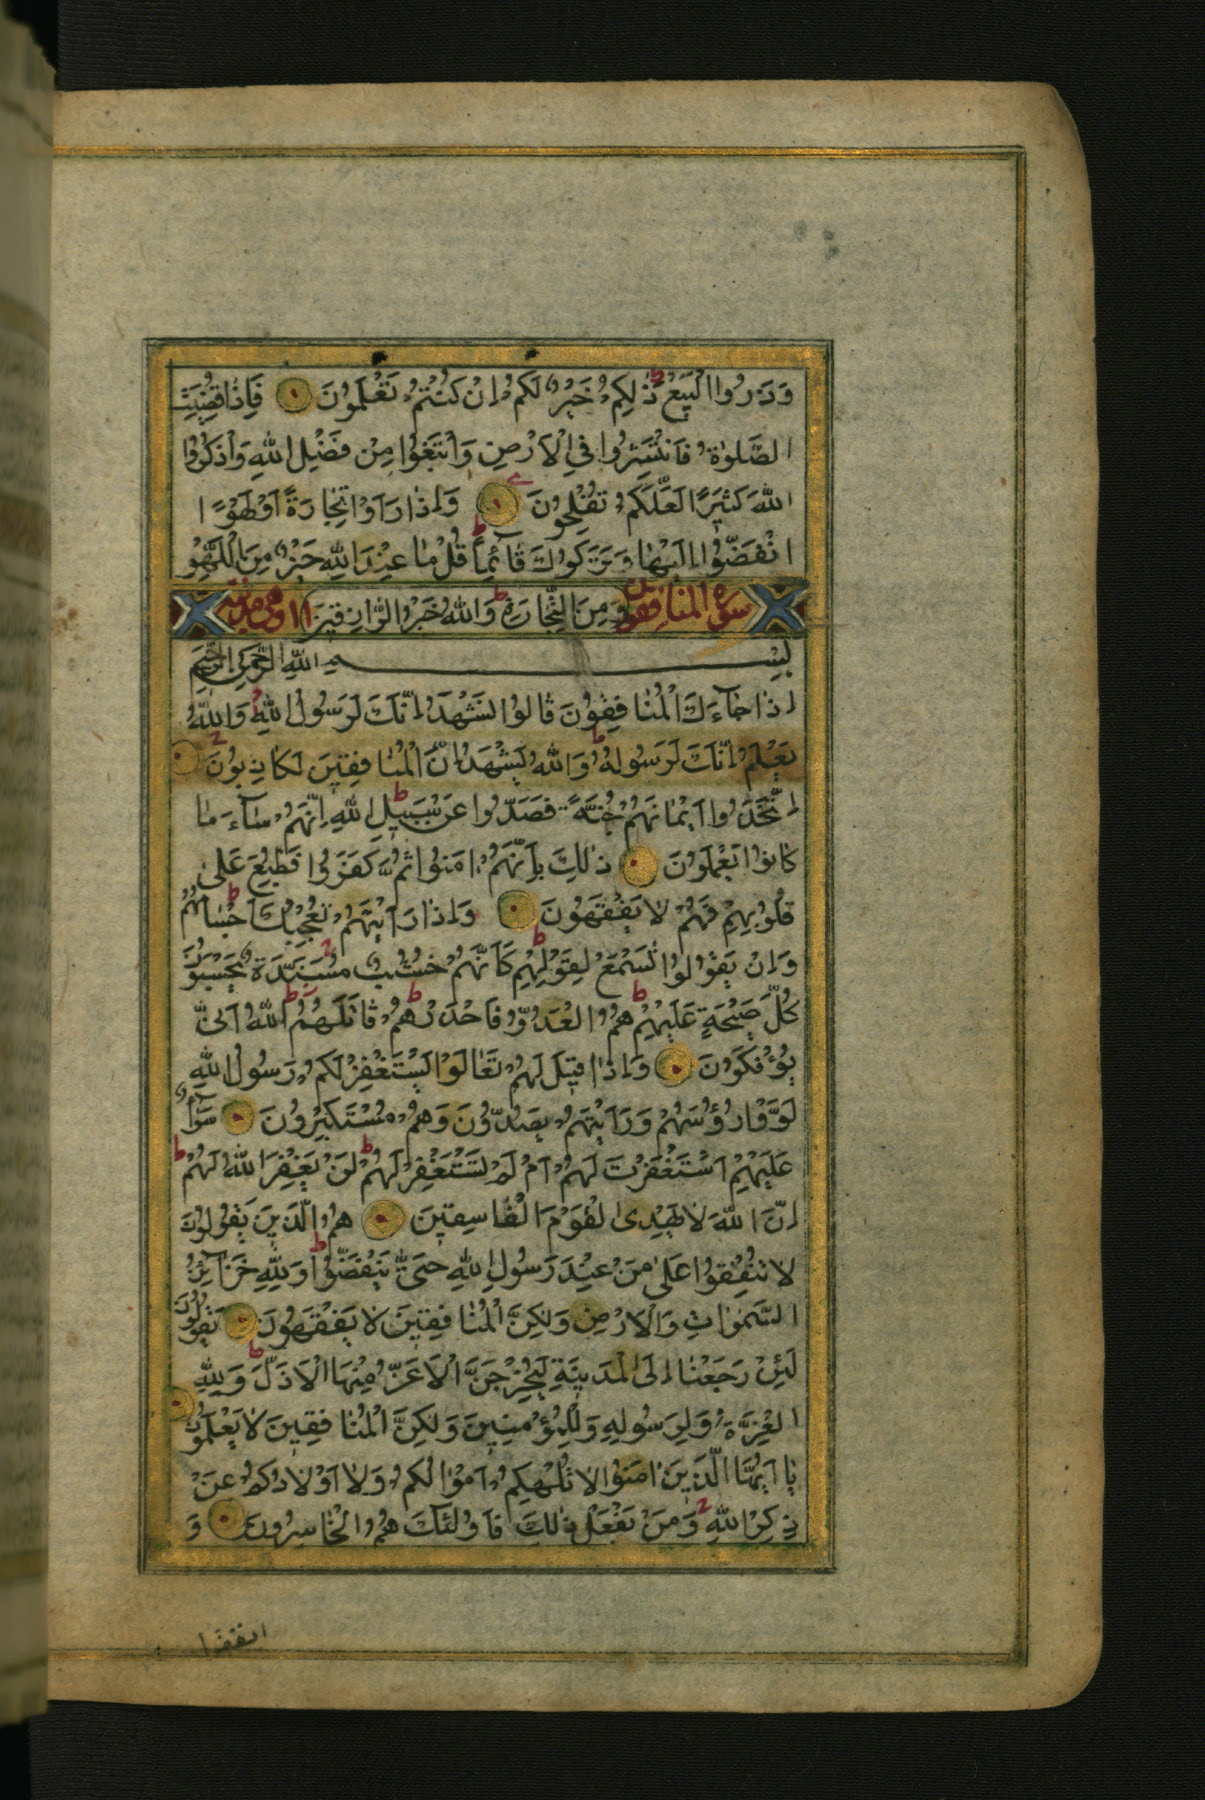 وَذَرُوا الْبَيْعَ ذٰلِكُمْ خَيْرٌ لَكُمْ اِنْ كُنْتُمْ تَعْلَمُونَ فَاِذَا قُضِيَتِ
الصَّلٰوةُ فَانْتَشِرُوا فِي الْاَرْضِ وَابْتَغُوا مِنْ فَضْلِ اللّٰهِ وَاذْكُرُوا
اللّٰهَ كَثِيرًا لَعَلَّكُمْ تُفْلِحُونَ وَاِذَا رَاَوْا تِجَارَةً اَوْ لَهْوًا
انْفَضُّوا اِلَيْهَا وَتَرَكُوكَ قَآئِمًا قُلْ مَا عِنْدَ اللّٰهِ خَيْرٌ مِنَ اللَّهْوِ
سورة المنافقون وَمِنَ التِّجَارَةِ وَاللّٰهُ خَيْرُ الرَّازِقِينَ
بِسْمِ اللّٰهِ الرَّحْمٰنِ الرَّحِيمِ
اِذَا جَآءَكَ الْمُنَافِقُونَ قَالُوا نَشْهَدُ اِنَّكَ لَرَسُولُ اللّٰهِ وَاللّٰهُ
يَعْلَمُ اِنَّكَ لَرَسُولُهُ وَاللّٰهُ يَشْهَدُ اِنَّ الْمُنَافِقِينَ لَكَاذِبُونَ
اِتَّخَذُوا اَيْمَانَهُمْ جُنَّةً فَصَدُّوا عَنْ سَبِيلِ اللّٰهِ اِنَّهُمْ سَآءَ مَا
كَانُوا يَعْمَلُونَ ذٰلِكَ بِاَنَّهُمْ اٰمَنُوا ثُمَّ كَفَرُوا فَطُبِعَ عَلٰى
قُلُوبِهِمْ فَهُمْ لَا يَفْقَهُونَ وَاِذَا رَاَيْتَهُمْ تُعْجِبُكَ اَجْسَامُهُمْ
وَاِنْ يَقُولُوا تَسْمَعْ لِقَوْلِهِمْ كَاَنَّهُمْ خُشُبٌ مُسَنَّدَةٌ يَحْسَبُونَ
كُلَّ صَيْحَةٍ عَلَيْهِمْ هُمُ الْعَدُوُّ فَاحْذَرْهُمْ قَاتَلَهُمُ اللّٰهُ اَنّٰى
يُؤْفَكُونَ وَاِذَا قِيلَ لَهُمْ تَعَالَوْا يَسْتَغْفِرْ لَكُمْ رَسُولُ اللّٰهِ
لَوَّوْا رُؤُسَهُمْ وَرَاَيْتَهُمْ يَصُدُّونَ وَهُمْ مُسْتَكْبِرُونَ سَوَآءٌ
عَلَيْهِمْ اَسْتَغْفَرْتَ لَهُمْ اَمْ لَمْ تَسْتَغْفِرْ لَهُمْ لَنْ يَغْفِرَ اللّٰهُ لَهُمْ
اِنَّ اللّٰهَ لَا يَهْدِى الْقَوْمَ الْفَاسِقِينَ هُمُ الَّذِينَ يَقُولُونَ
لَا تُنْفِقُوا عَلٰى مَنْ عِنْدَ رَسُولِ اللّٰهِ حَتّٰى يَنْفَضُّوا وَلِلّٰهِ خَزَآئِنُ
السَّمٰوَاتِ وَالْاَرْضِ وَلٰكِنَّ الْمُنَافِقِينَ لَا يَفْقَهُونَ يَقُولُونَ
لَئِنْ رَجَعْنَا اِلَى الْمَدِينَةِ لَيُخْرِجَنَّ الْاَعَزُّ مِنْهَا الْاَذَلَّ وَلِلّٰهِ
الْعِزَّةُ وَلِرَسُولِهِ وَلِلْمُؤْمِنِينَ وَلٰكِنَّ الْمُنَافِقِينَ لَا يَعْلَمُونَ
يَا اَيُّهَا الَّذِينَ اٰمَنُوا لَا تُلْهِكُمْ اَمْوَالُكُمْ وَلَا اَوْلَادُكُمْ عَنْ
ذِكْرِ اللّٰهِ وَمَنْ يَفْعَلْ ذٰلِكَ فَاُولٰئِكَ هُمُ الْخَاسِرُونَ وَ
انفقوا